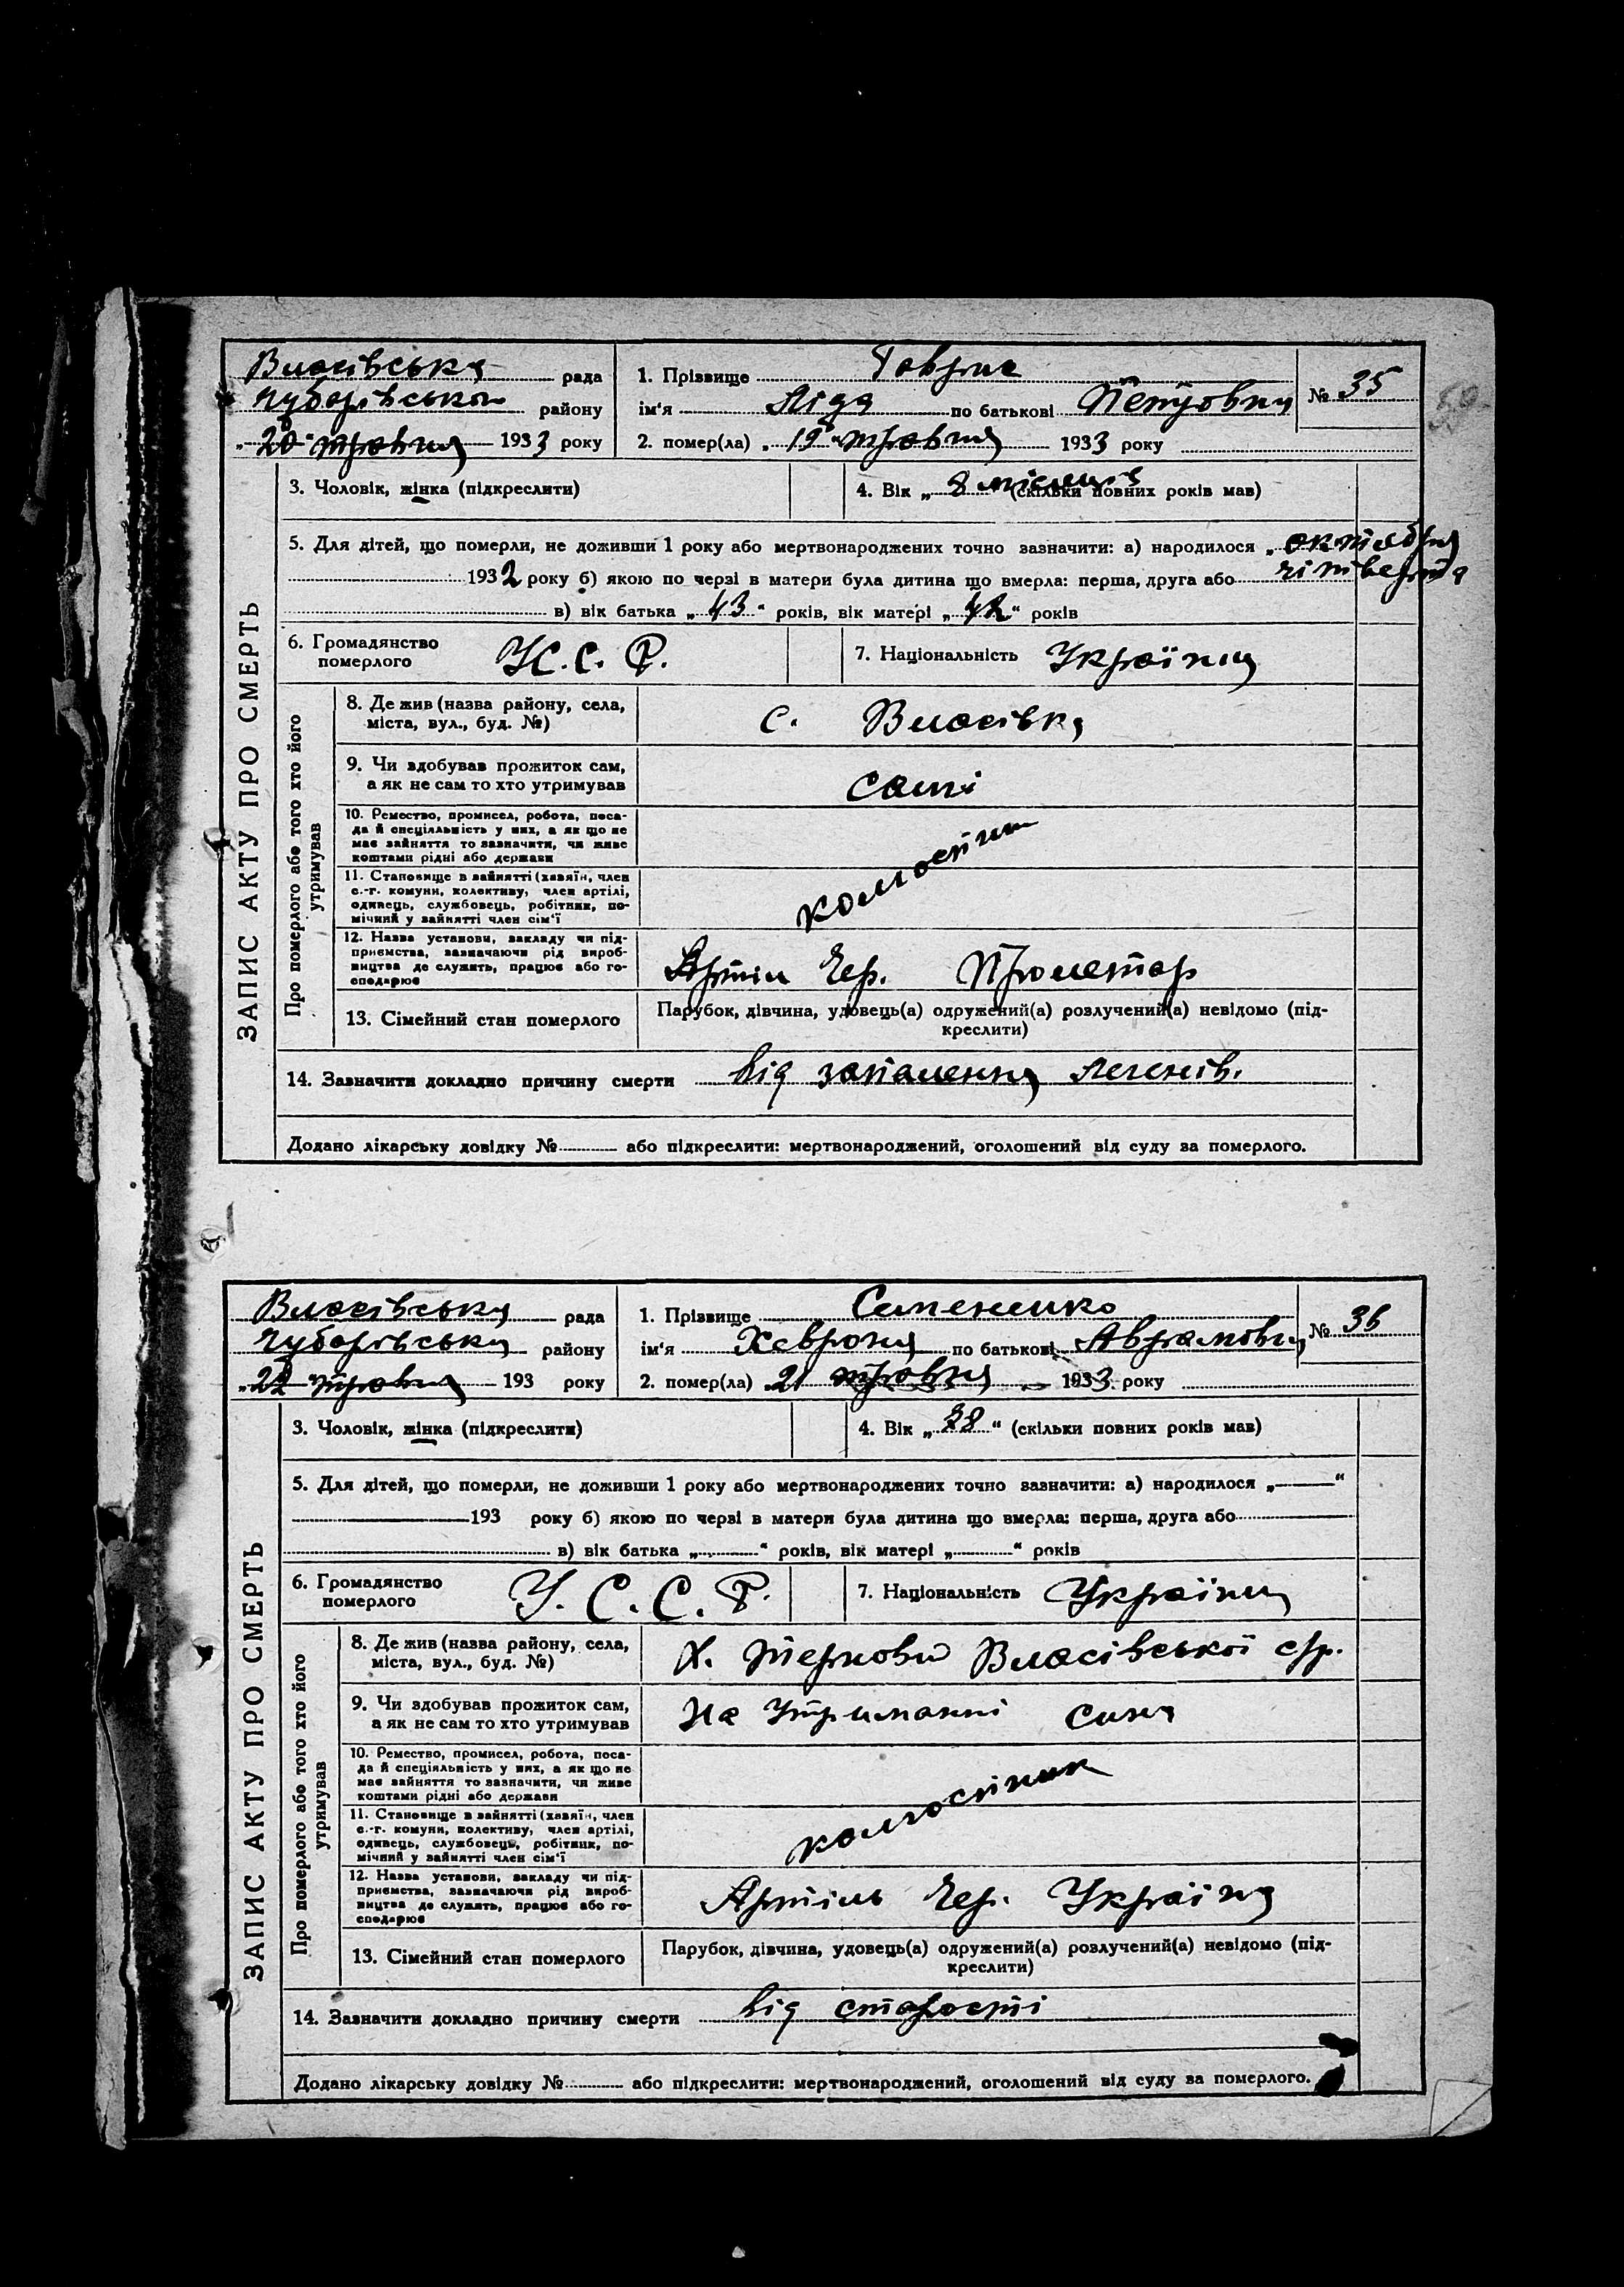 Власівська рада
Чубарівськом району
„20" травня 1933 року
1. Прізвище Гаврис
ім'я Ліда по батькові Петровна
№ 35
2. помер(ла) „19" травня 1933 року
3. Чоловік, жінка (підкреслити)
4. Вік „8 місяців (скільки повних років мав)
5. Для дітей, що померли, не доживши 1 року або мертвонароджених точно зазначити: а) народилося „октября
1932 року б) якою по черзі в матери була дитина що вмерла: перша, друга або чітверта
в) вік батька „43" років, вік матері „42" років
ЗАПИС АКТУ ПРО СМЕРТЬ
6. Громадянство
померлого
У.С.С.Р.
7. Національність Українця
Про померлого або того хто його
утримував
8. Де жив (назва району, села,
міста, вул., буд. №)
с. Власівка
9. Чи здобував прожиток сам,
а як не сам то хто утримував
самі
10. Ремество, промисел, робота, поса-
да й спеціяльність у них, а як що не
має зайняття то зазначити, чи живе
коштами рідні або держави
колгоспник
11. Становище в зайнятті (хазяїн, член
с.-г. комуни, колективу, член артілі,
одинець, службовець, робітник, по-
мічний у зайнятті член сім'ї
12. Назва установи, закладу чи під-
приємства, зазначаючи рід вироб-
ництва де служить, працює або го-
сподарює
Артіл Чер. Пролетар
13. Сімейний стан померлого
Парубок, дівчина, удовець(а) одружений(а) розлучений(а) невідомо (під-
креслити)
14. Зазначити докладно причину смерти від запалення легенів.
Додано лікарську довідку № або підкреслити: мертвонароджений, оголошений від суду за померлого.
Власівська рада
Чубарівська району
„22" травня 193 року
1. Прізвище Семененко
ім'я Хеврония по батькові Аврамовна
№ 36
2. помер(ла) „21 травня 1933 року
3. Чоловік, жінка (підкреслити)
4. Вік „88" (скільки повних років мав)
5. Для дітей, що померли, не доживши 1 року або мертвонароджених точно зазначити: а) народилося „ "
193 року б) якою по черзі в матери була дитина що вмерла: перша, друга або
в) вік батька „ " років, вік матері „ " років
ЗАПИС АКТУ ПРО СМЕРТЬ
6. Громадянство
померлого
У.С.С.Р.
7. Національність Україн
Про померлого або того хто його
утримував
8. Де жив (назва району, села,
міста, вул., буд. №)
Х. Терновий Власівської с/р.
9. Чи здобував прожиток сам,
а як не сам то хто утримував
На Утриманні сина
10. Ремество, промисел, робота, поса-
да й спеціяльність у них, а як що не
має зайняття то зазначити, чи живе
коштами рідні або держави
колгоспник
11. Становище в зайнятті (хазяїн, член
с.-г. комуни, колективу, член артілі,
одинець, службовець, робітник, по-
мічний у зайнятті член сім'ї
12. Назва установи, закладу чи під-
приємства, зазначаючи рід вироб-
ництва де служить, працює або го-
сподарює
Артіль Чер. Україна
13. Сімейний стан померлого
Парубок, дівчина, удовець(а) одружений(а) розлучений(а) невідомо (під-
креслити)
14. Зазначити докладно причину смерти від старости
Додано лікарську довідку № або підкреслити: мертвонароджений, оголошений від суду за померлого.